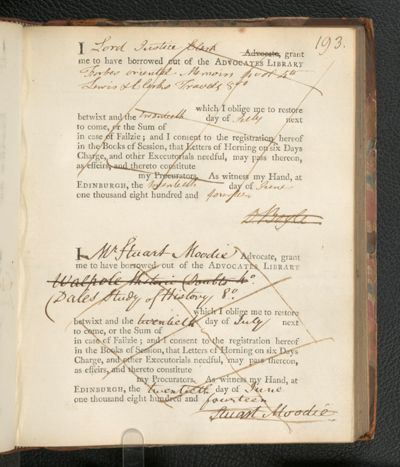 193.
I Lord Justice Clerk Advocate, grant
me to have borrowed out of the ADVOCATES LIBRARY
Forbes oriental Memoirs 4to
Lewis & Clarks Travels 8vo
which I oblige me to restore
betwixt and the twentieth day of July next
to come, or the Sum of
in case of Failzie; and I consent to the registration hereof
in the Books of Session, that Letters of Horning on six Days
Charge, and other Executorials needful, may pass thereon,
as effeirs, and thereto constitute
my Procurators. As witness my Hand, at
EDINBURGH, the twentieth day of June
one thousand eight hundred and fourteen
D Boyle
I Mr Stuart Moodie Advocate, grant
me to have borrowed out of the ADVOCATES LIBRARY
Walpole Historic Doubts 4o.
Dales Study of History 8o
which I oblige me to restore
betwixt and the twentieth day of July next
to come, or the Sum of
in case of Failzie; and I consent to the registration hereof
in the Books of Session, that Letters of Horning on six Days
Charge, and other Executorials needful, may pass thereon,
as effeirs, and thereto constitute
my Procurators. As witness my Hand, at
EDINBURGH, the twentieth day of June
one thousand eight hundred and fourteen
Stuart Moodie